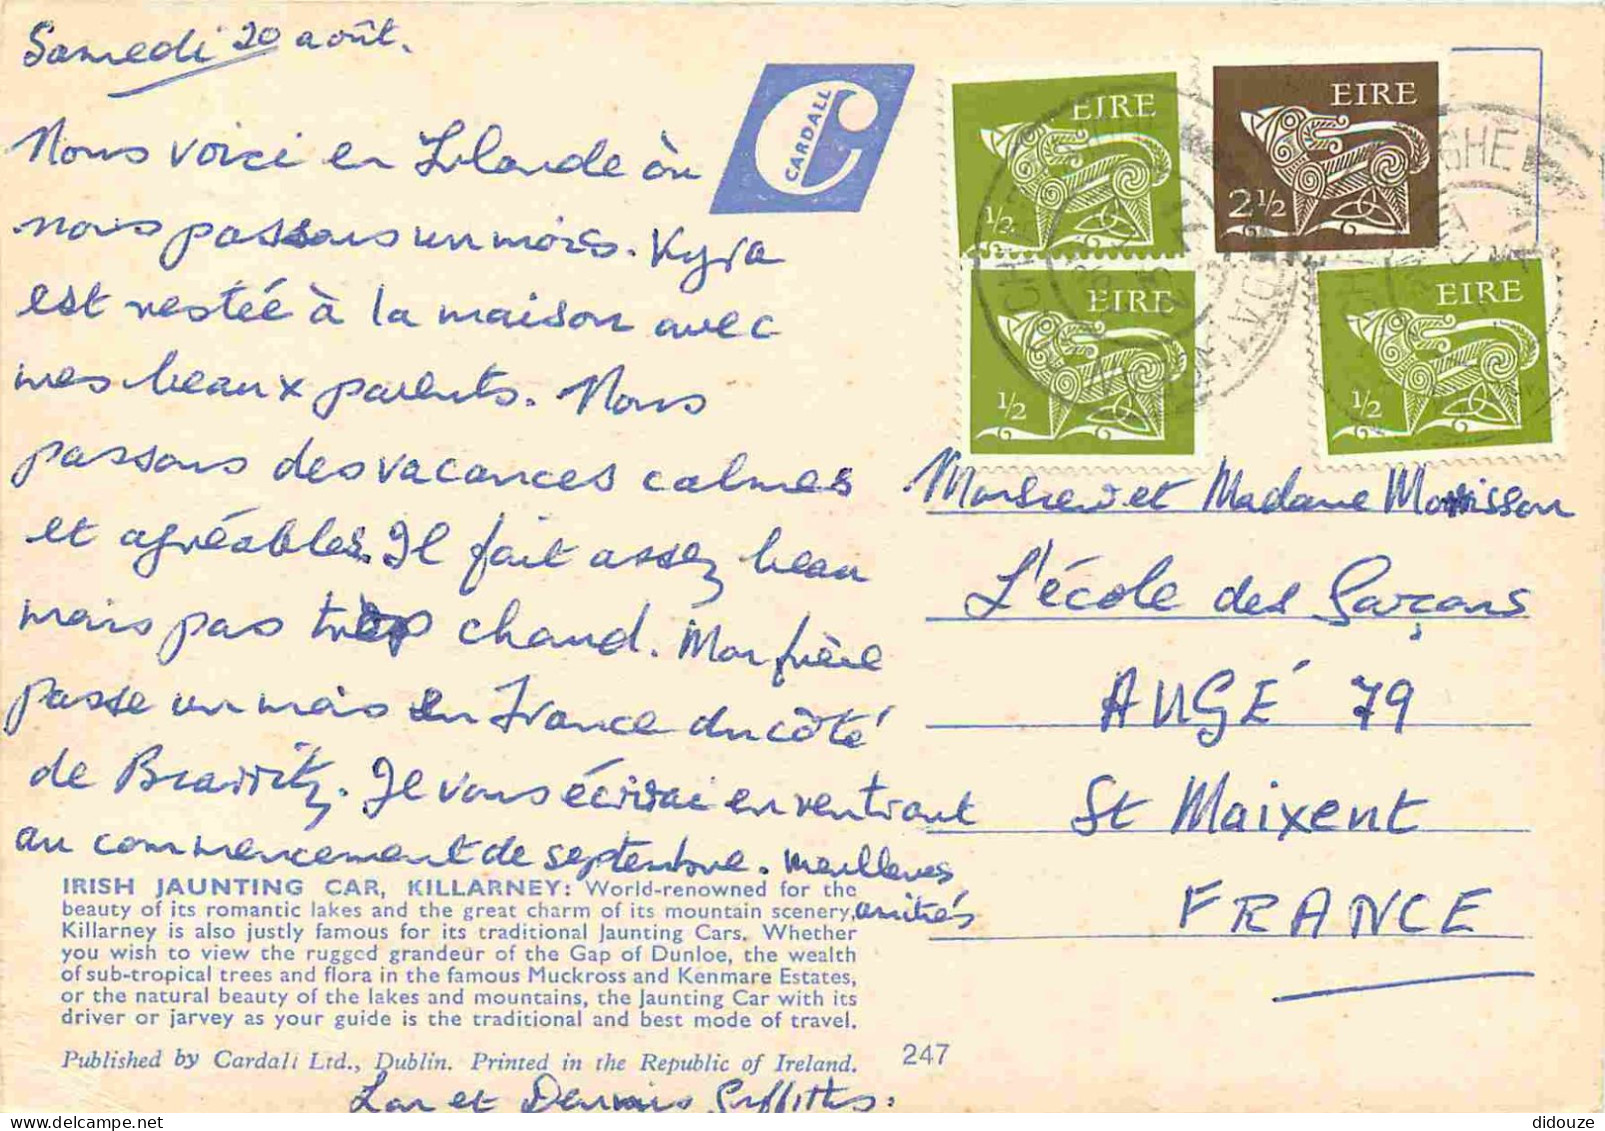 Samedi 20 août.
Nous voici en Irlande où
nous passons un mois. Kyra
est restée à la maison avec
mes beaux parents. Nous
passons des vacances calmes
et agréables. Il fait assez beau
mais pas trop chaud. Mon frère
passe un mois en France du côté
de Biarritz. Je vous écrirai en rentrant
au commencement de septembre. Meilleures
amitiés
IRISH JAUNTING CAR, KILLARNEY: World-renowned for the
beauty of its romantic lakes and the great charm of its mountain scenery,
Killarney is also justly famous for its traditional Jaunting Cars. Whether
you wish to view the rugged grandeur of the Gap of Dunloe, the wealth
of sub-tropical trees and flora in the famous Muckross and Kenmare Estates,
or the natural beauty of the lakes and mountains, the Jaunting Car with its
driver or jarvey as your guide is the traditional and best mode of travel.
Published by Cardall Ltd., Dublin. Printed in the Republic of Ireland.
247
et Dennis Griffiths.
CARDALL
EIRE
1/2
EIRE
2 1/2
EIRE
1/2
EIRE
1/2
Monsieur et Madame Morrisson
L'école des Garçons
AUGÉ 79
St Maixent
FRANCE
didouze